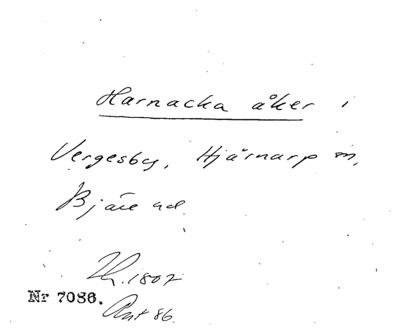 Harnacka åker i
Vergesby, Hjärnarp sn,
Bjäre hd.
Th. 1807
Nr 7086.
Ant 86.